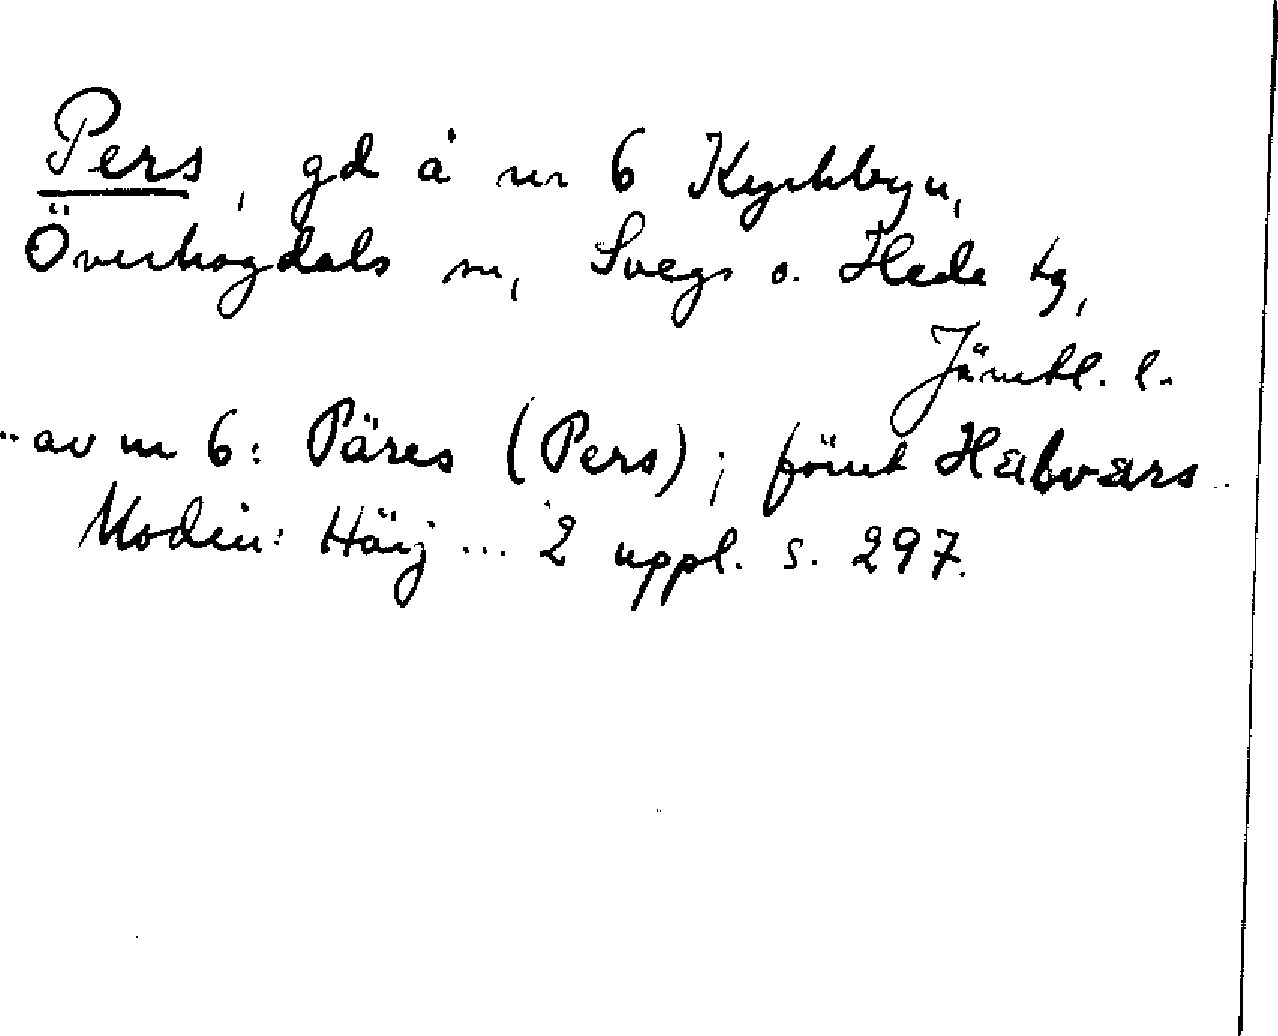 Pers, gd å nr 6 Kyrkbyn,
Överhogdals sn, Svegs o. Hede tg,
Jämtl. l.
.. av nr 6: Päres (Pers); förut Halvars ..
Modin: Härj ... 2 uppl. s. 297.